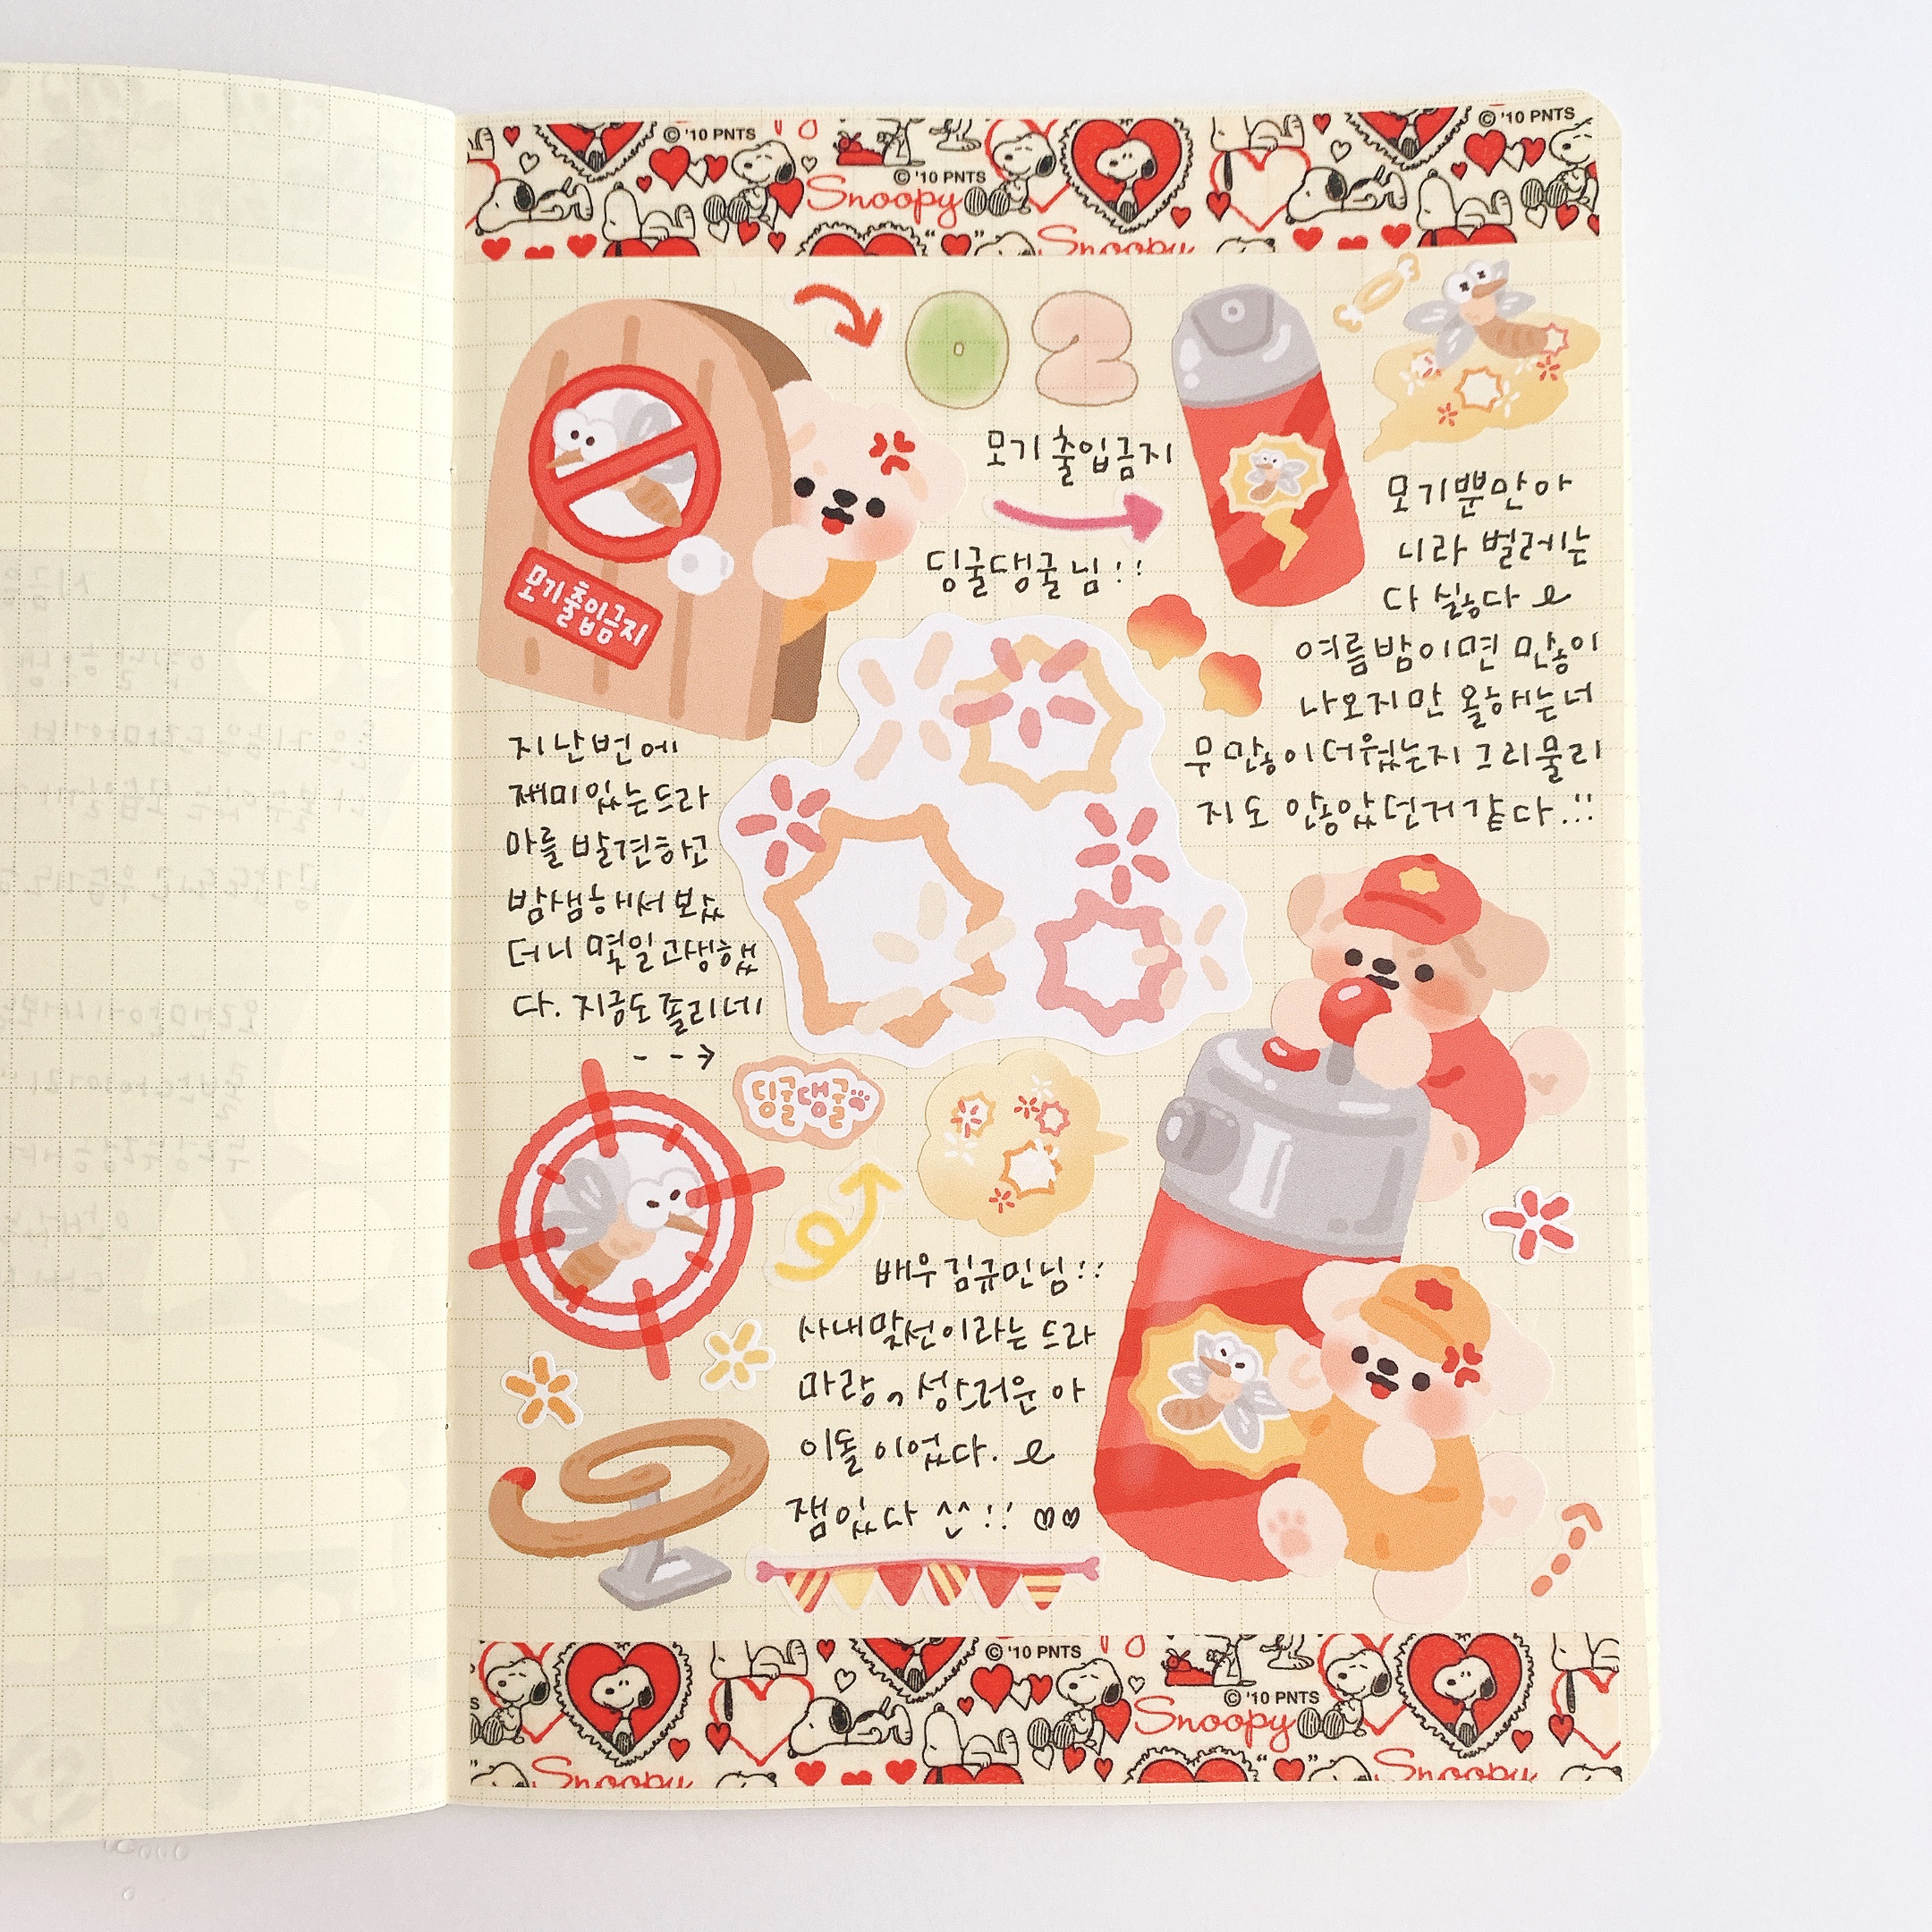 © '10 PNTS
© '10 PNTS
© '10 PNTS
Snoopy
Snoopy
02
모기출입금지
모기출입금지
딩굴댕굴님!!
모기뿐만아
니라 벌레는
다 싫다
여름밤이면 많이
나오지만 올해는너
무 많이더웠는지 그리물리
지도 않았던거같다..!!
지난번에
재미있는드라
마를 발견하고
밤샘해서봤
더니 몇일고생했
다. 지금도졸리네
딩굴댕굴
배우김규민님!!
사내맞선이라는 드라
마랑, 성스러운 아
이돌이었다.
잼있다 ^^!!
© '10 PNTS
© '10 PNTS
Snoopy
Snoopy
Snoopy